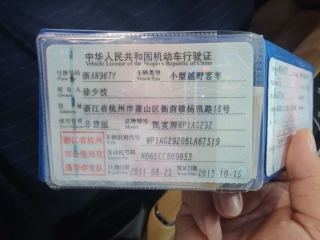 中华人民共和国机动车行驶证
Vehicle License of the People's Republic of China
号牌号码 浙AN967Y 车辆类型 小型越野客车
所有人 徐少波
住址 浙江省杭州市萧山区衙前镇杨汛路18号
使用性质 非营运 品牌型号 凯宴牌WP1AG292
浙江省杭州
市公安局交
通警察支队
车辆识别代号 WP1AG2920BLA67519
发动机号码 M06ECC669053
注册日期 2011-08-23 发证日期 2013-10-15